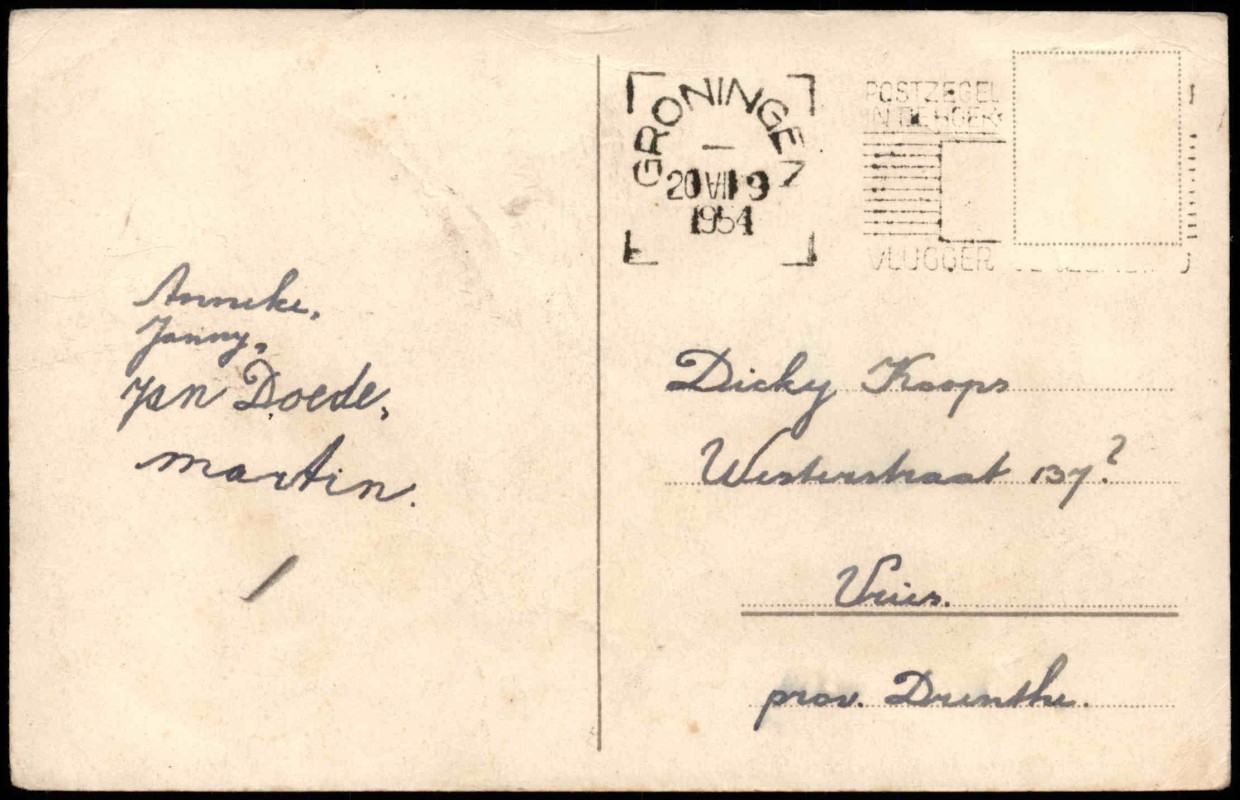 Anneke,
Janny,
Jan Doede,
martin.
GRONINGEN
20 VII 9
1954
POSTZEGEL
IN DE
VLUGGER
Dicky Koops
Westerstraat 137?
Vries.
prov. Drenthe.